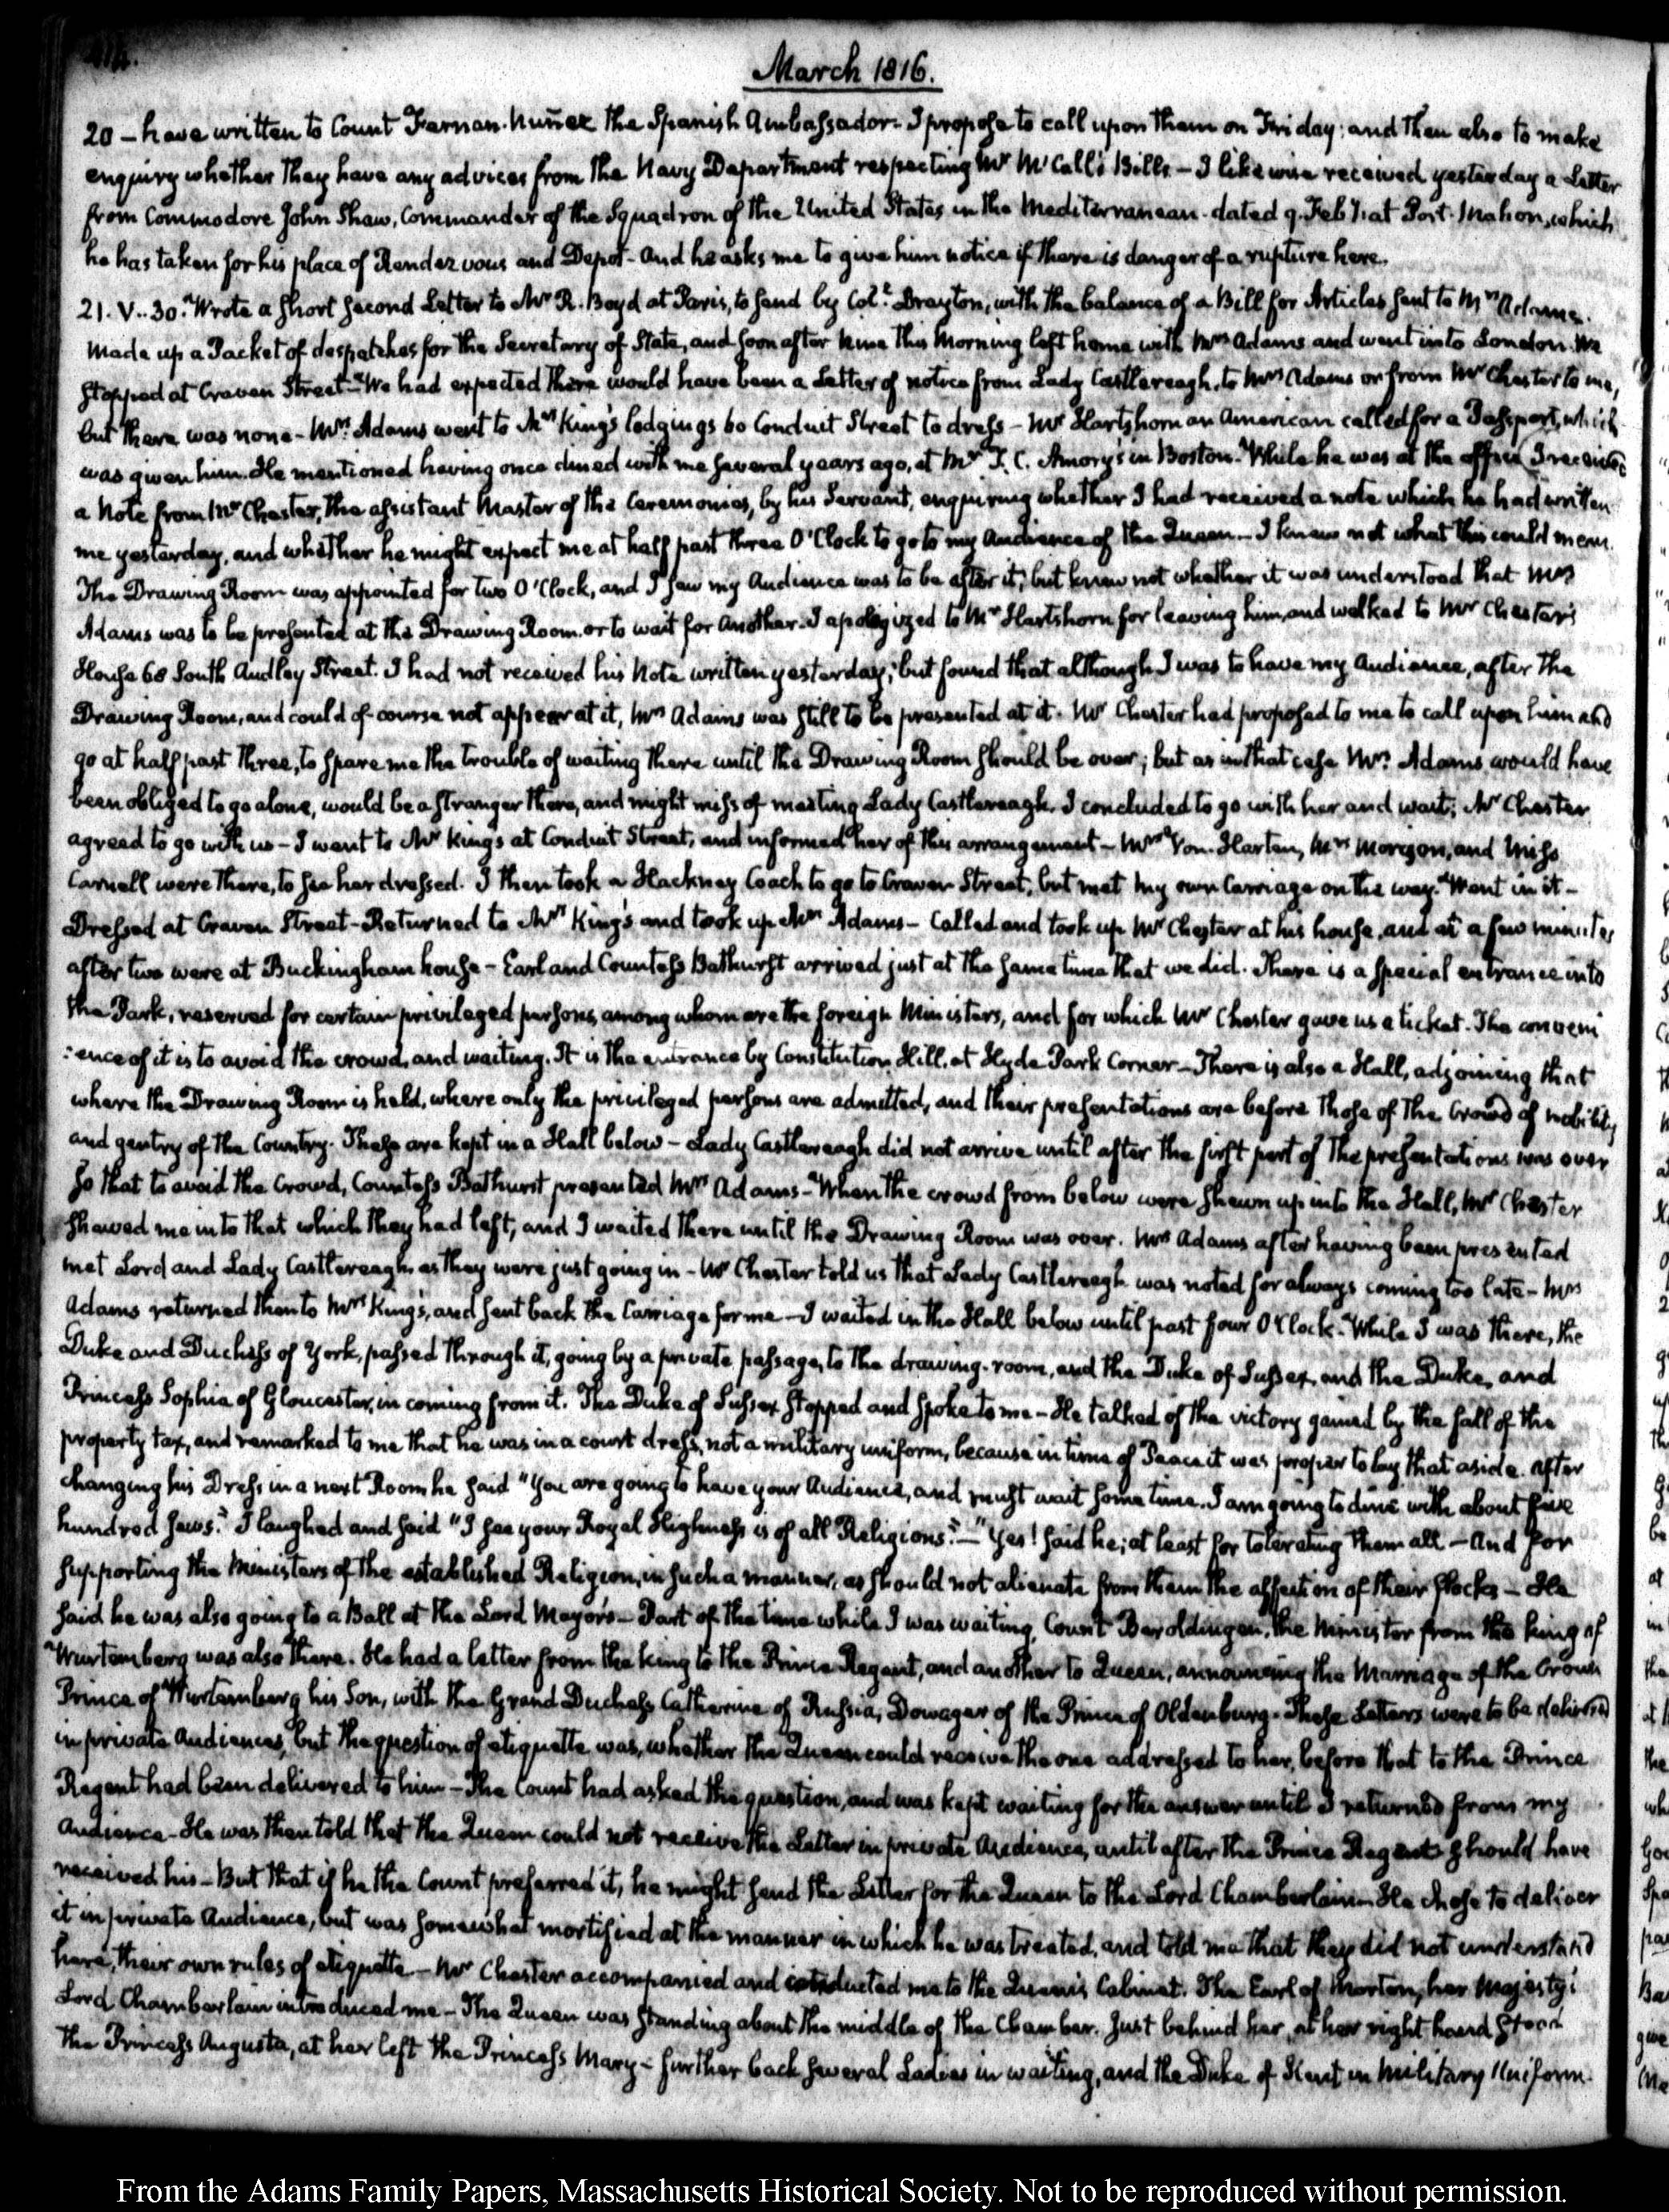 414.
March 1816.
20 – have written to Count Fernan-Nuñez the Spanish Ambassador. I propose to call upon them on Friday; and then also to make
enquiry whether they have any advices from the Navy Department respecting Mr McCall's Bills – I likewise received yesterday a Letter
from Commodore John Shaw, Commander of the Squadron of the United States in the Mediterranean. dated 9. Feby: at Port-Mahon, which
he has taken for his place of Rendezvous and Depot – And he asks me to give him notice if there is danger of a rupture here.
21. V..30. Wrote a short second Letter to Mr R. Boyd at Paris, to send by Coll: Drayton, with the balance of a Bill for Articles sent to Mrs Adams.
Made up a Packet of despatches for the Secretary of State, and soon after nine this Morning left home with Mrs Adams and went into London. We
stopped at Craven Street – We had expected there would have been a Letter of notice from Lady Castlereagh, to Mrs Adams or from Mr Chester to me,
but there was none – Mrs Adams went to Mrs King's lodgings 60 Conduit Street to dress – Mr Hartshorn an American called for a Passport, which
was given him. He mentioned having once dined with me several years ago, at Mr T. C. Amory's in Boston. While he was at the office I received
a Note from Mr Chester, the assistant Master of the Ceremonies, by his Servant, enquiring whether I had received a note which he had written
me yesterday, and whether he might expect me at half past three O'Clock to go to my Audience of the Queen – I knew not what this could mean.
The Drawing Room was appointed for two O'Clock, and I saw my Audience was to be after it; but knew not whether it was understood that Mrs
Adams was to be presented at this Drawing Room or to wait for another. I apologized to Mr Hartshorn for leaving him, and walked to Mr Chester's
House 68 South Audley Street. I had not received his Note written yesterday; but found that although I was to have my Audience, after the
Drawing Room, and could of course not appear at it, Mrs Adams was still to be presented at it. Mr Chester had proposed to me to call upon him and
go at half past three, to spare me the trouble of waiting there until the Drawing Room should be over; but as in that case Mrs Adams would have
been obliged to go alone, would be a stranger there, and might miss of meeting Lady Castlereagh. I concluded to go with her and wait; Mr Chester
agreed to go with us – I went to Mrs King's at Conduit Street, and informed her of this arrangement – Mrs Von-Harten, Mrs Morison, and Miss
Carnell were there, to see her dressed. I then took a Hackney Coach to go to Craven Street, but met my own Carriage on the way. Went in it –
Dressed at Craven Street – Returned to Mrs King's and took up Mrs Adams – Called and took up Mr Chester at his house, and at a few minutes
after two were at Buckingham house – Earl and Countess Bathurst arrived just at the same time that we did. There is a special entrance into
the Park, reserved for certain privileged persons, among whom are the foreign Ministers, and for which Mr Chester gave us a ticket. The conveni
:ence of it is to avoid the crowd, and waiting. It is the entrance by Constitution Hill, at Hyde Park Corner – There is also a Hall, adjoining that
where the Drawing Room is held, where only the privileged persons are admitted, and their presentations are before those of the Crowd of nobility
and gentry of the Country. These are kept in a Hall below – Lady Castlereagh did not arrive until after the first part of the presentations was over
so that to avoid the Crowd, Countess Bathurst presented Mrs Adams – When the crowd from below were shewn up into the Hall, Mr Chester
shewed me into that which they had left, and I waited there until the Drawing Room was over. Mrs Adams after having been presented
met Lord and Lady Castlereagh as they were just going in – Mr Chester told us that Lady Castlereagh was noted for always coming too late – Mrs
Adams returned then to Mrs King's, and sent back the Carriage for me – I waited in the Hall below until past four O'Clock. While I was there, the
Duke and Duchess of York, passed through it, going by a private passage, to the drawing-room, and the Duke of Sussex, and the Duke, and
Princess Sophia of Gloucester, in coming from it. The Duke of Sussex stopped and spoke to me – He talked of the victory gained by the fall of the
property tax, and remarked to me that he was in a court dress, not a military uniform, because in time of Peace it was proper to lay that aside. After
changing his Dress in a next Room he said "You are going to have your Audience, and must wait some time. I am going to dine with about five
hundred Jews." I laughed and said "I see your Royal Highness is of all Religions" – "Yes! said he; at least for tolerating them all – And for
supporting the Ministers of the established Religion, in such a manner, as should not alienate from them the affection of their flocks – He
said he was also going to a Ball at the Lord Mayor's – Part of the time while I was waiting, Count Beroldingen, the Minister from the king of
Wurtemberg was also there. He had a letter from the king to the Prince Regent, and another to Queen, announcing the Marriage of the Crown
Prince of Wurtemberg his Son, with the Grand Duchess Catherine of Russia, Dowager of the Prince of Oldenburg. These Letters were to be delivered
in private Audiences, but the question of etiquette was, whether the Queen could receive the one addressed to her, before that to the Prince
Regent had been delivered to him – The Count had asked the question, and was kept waiting for the answer until I returned from my
Audience – He was then told that the Queen could not receive the Letter in private Audience, until after the Prince Regent should have
received his – But that if he the Count preferred it, he might send the Letter for the Queen to the Lord Chamberlain – He chose to deliver
it in private Audience, but was somewhat mortified at the manner in which he was treated, and told me that they did not understand
here, their own rules of etiquette – Mr Chester accompanied and conducted me to the Queen's Cabinet. The Earl of Morton, her Majesty's
Lord Chamberlain introduced me – The Queen was standing about the middle of the Chamber. Just behind her, at her right hand stood
the Princess Augusta, at her left the Princess Mary – further back several Ladies in waiting, and the Duke of Kent in Military Uniform.
From the Adams Family Papers, Massachusetts Historical Society. Not to be reproduced without permission.